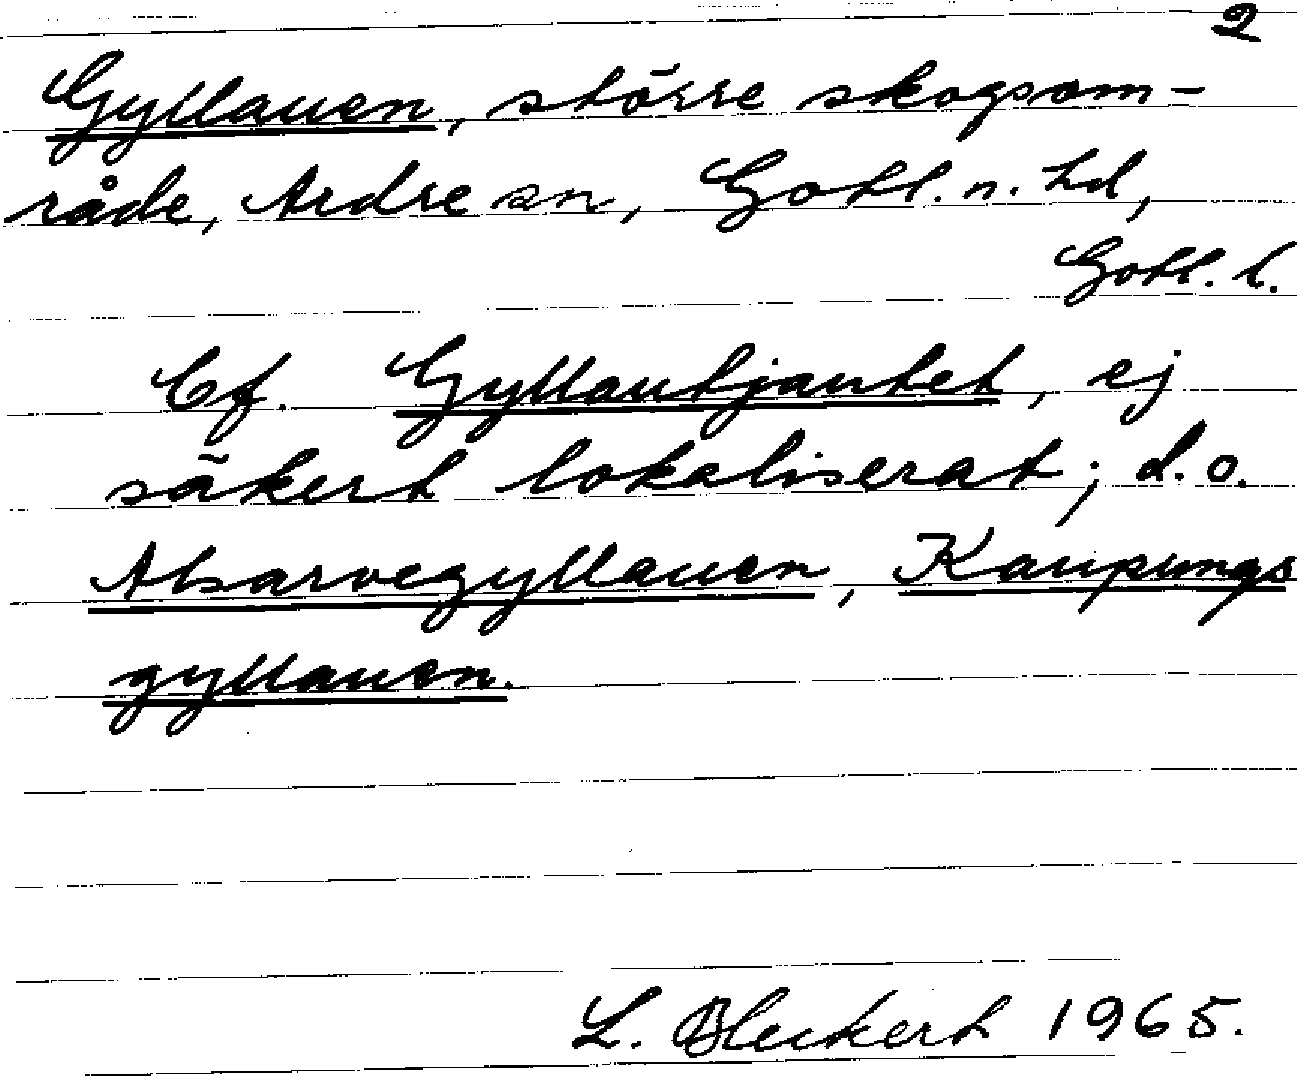 2
Gyllauen, större skogsom-
råde, Ardre sn, Gotl. n. hd,
Gotl. l.
Cf. Gyllautjautet, ej
säkert lokaliserat; d.o.
Alsarvegyllauen, Kaupungs
gyllauen.
L. Bleckert 1965.